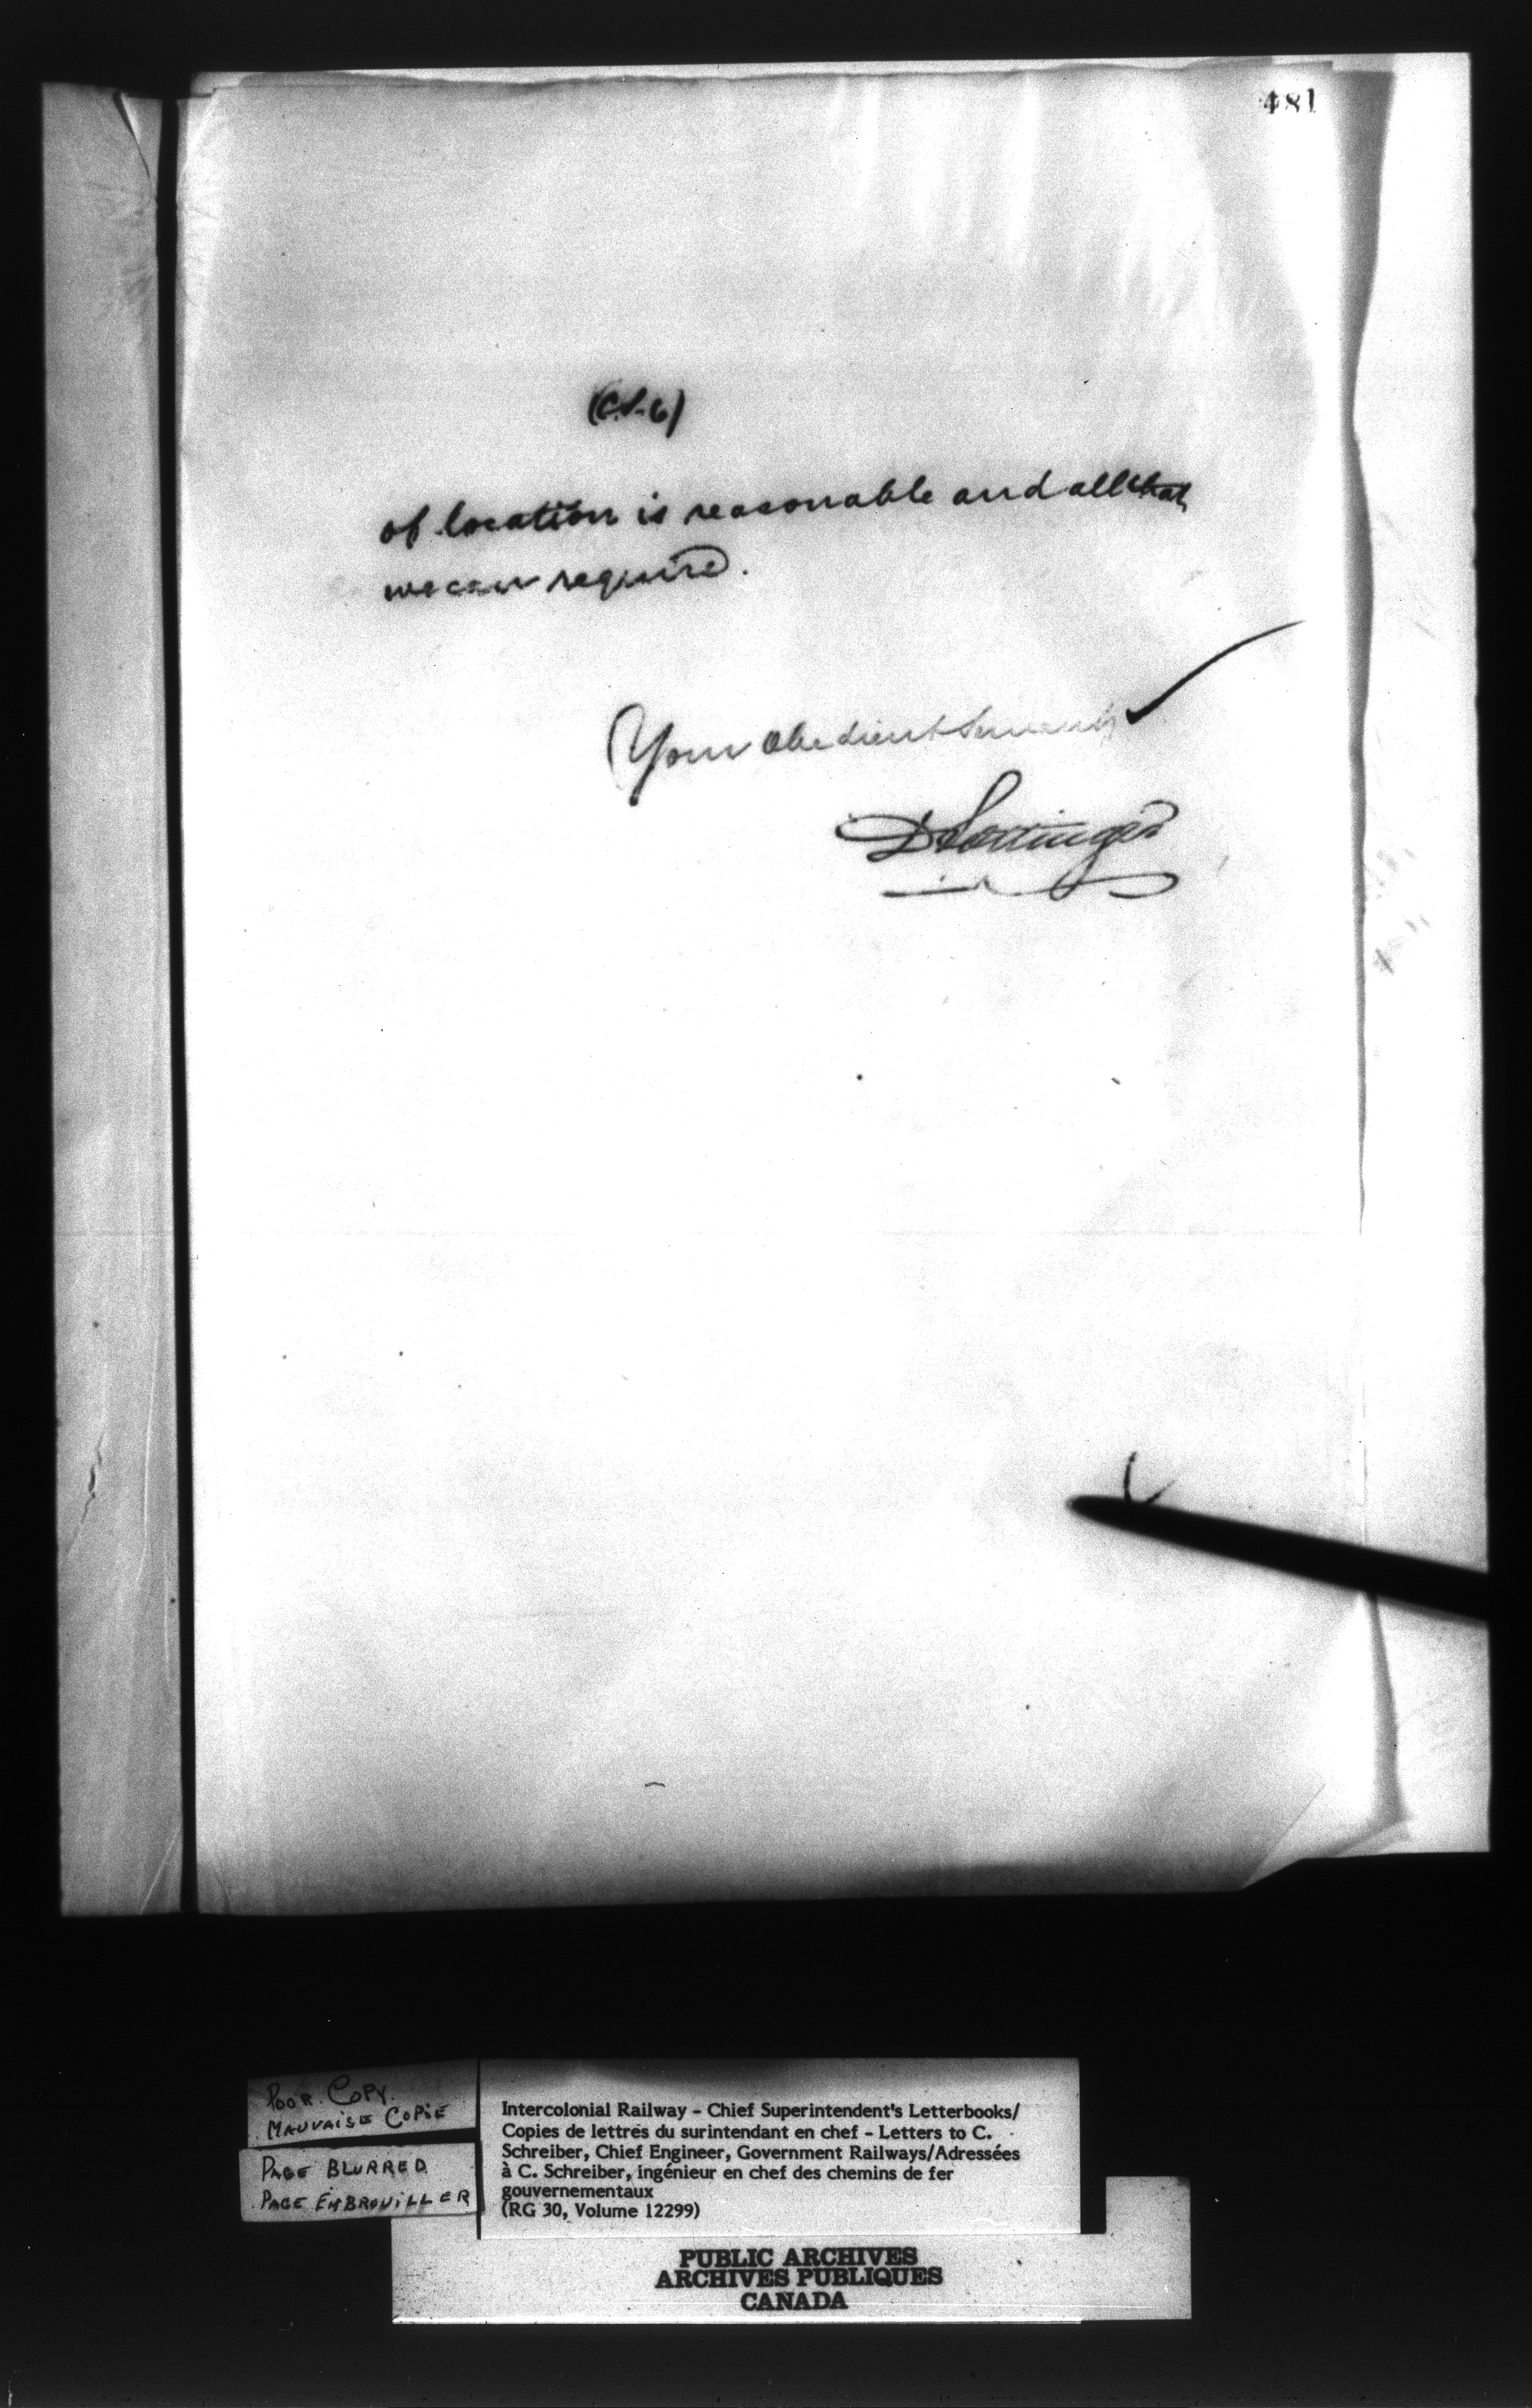 481
(C.S. 6)
of location is reasonable and all that
we can require.
Your Obedient Servant
D Pottinger
POOR COPY.
MAUVAISE COPIE
PAGE BLURRED
PAGE EMBROUILLER
Intercolonial Railway - Chief Superintendent's Letterbooks/
Copies de lettres du surintendant en chef - Letters to C.
Schreiber, Chief Engineer, Government Railways/Adressées
à C. Schreiber, ingénieur en chef des chemins de fer
gouvernementaux
(RG 30, Volume 12299)
PUBLIC ARCHIVES
ARCHIVES PUBLIQUES
CANADA